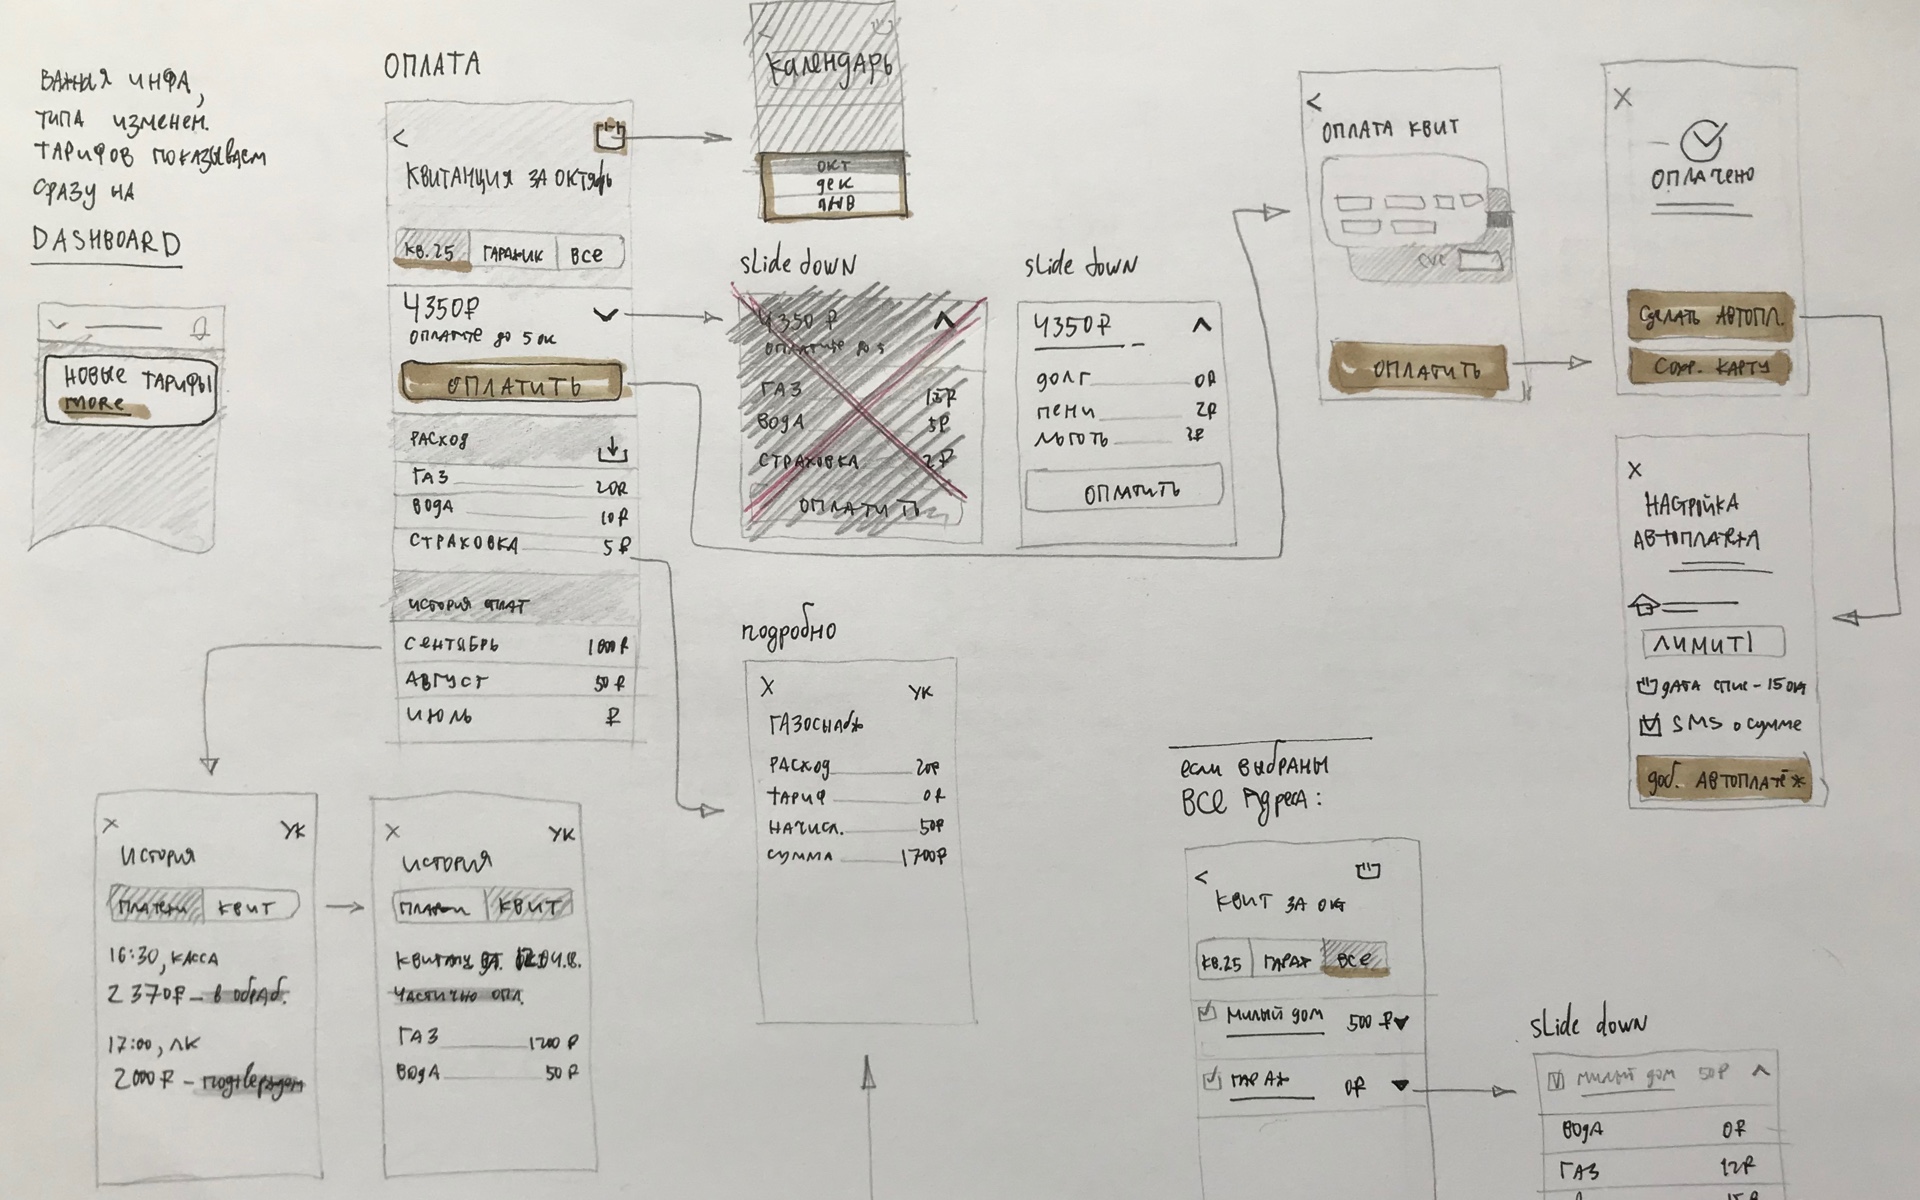 ВАЖНАЯ ИНФА,
ТИПА ИЗМЕНЕН.
ТАРИФОВ ПОКАЗЫВАЕМ
СРАЗУ НА
DASHBOARD
НОВЫЕ ТАРИФЫ
MORE
ОПЛАТА
<
КВИТАНЦИЯ ЗА ОКТЯБРЬ
КВ.25 ГАРАЖИК ВСЕ
4350₽
ОПЛАТИТЕ ДО 5 ОК
ОПЛАТИТЬ
РАСХОД
ГАЗ 20₽
ВОДА 10₽
СТРАХОВКА 5₽
ИСТОРИЯ ОПЛАТ
СЕНТЯБРЬ 1000₽
АВГУСТ 50₽
ИЮЛЬ ₽
КАЛЕНДАРЬ
ОКТ
ДЕК
ЯНВ
slide down
4350₽
ОПЛАТИТЕ ДО 5
ГАЗ
ВОДА 5₽
СТРАХОВКА 2₽
ОПЛАТИТЬ
slide down
4350₽
ДОЛГ 0₽
ПЕНИ 2₽
ЛЬГОТЬ
ОПЛАТИТЬ
<
ОПЛАТА КВИТ
CVC
ОПЛАТИТЬ
X
ОПЛАЧЕНО
СДЕЛАТЬ АВТОПЛ.
СОХР. КАРТУ
X
НАСТРОЙКА
АВТОПЛАТЕЖА
ЛИМИТ
ДАТА СПИС - 15 ОКТ
SMS О СУММЕ
ДОБ. АВТОПЛАТЁЖ
подробно
X УК
ГАЗОСНАБЖ
РАСХОД 20₽
ТАРИФ 0₽
НАЧИСЛ. 50₽
СУММА 1700₽
X УК
ИСТОРИЯ
ПЛАТЕЖИ КВИТ
16:30, КАССА
2 370₽ - В ОБРАБ.
17:00, ЛК
2000₽ - подтвержден
X УК
ИСТОРИЯ
КВИТ
ЧАСТИЧНО ОПЛ.
ГАЗ 1200₽
ВОДА 50₽
если ВЫБРАНЫ
ВСЕ АДРЕСА:
<
КВИТ ЗА ОКТ
КВ.25 ГАРАЖ ВСЕ
МИЛЫЙ ДОМ 500₽
ГАРАЖ 0₽
slide down
МИЛЫЙ ДОМ 50₽
ВОДА 0₽
ГАЗ 12₽